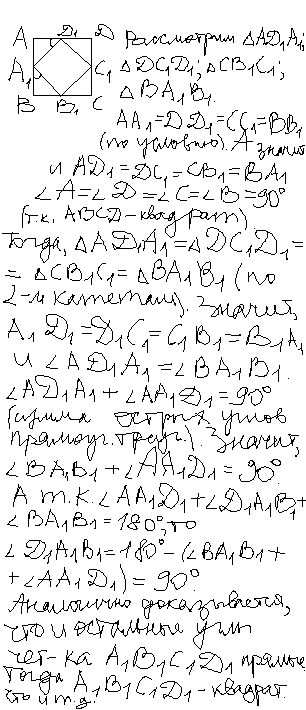 A D₁ D Рассмотрим △AD₁A₁;
A₁ C₁ △DC₁D₁; △CB₁C₁;
B B₁ C △BA₁B₁.
AA₁=DD₁=CC₁=BB₁
(по условию). А значит
и AD₁=DC₁=CB₁=BA₁
∠A=∠D=∠C=∠B=90°
(т.к. ABCD-квадрат)
Тогда, △AD₁A₁=△DC₁D₁=
=△CB₁C₁=△BA₁B₁ (по
2-м катетам). Значит,
A₁D₁=D₁C₁=C₁B₁=B₁A₁
и ∠AD₁A₁=∠BA₁B₁.
∠AD₁A₁+∠AA₁D₁=90°
(сумма острых углов
прямоуг. треуг.). Значит,
∠BA₁B₁+∠AA₁D₁=90°.
А т.к. ∠AA₁D₁+∠D₁A₁B₁+
∠BA₁B₁=180°, то
∠D₁A₁B₁=180°-(∠BA₁B₁+
+∠AA₁D₁)=90°.
Аналогично доказывается,
что и остальные углы
чет-ка A₁B₁C₁D₁ прямые
тогда A₁B₁C₁D₁-квадрат.
что и т.д.